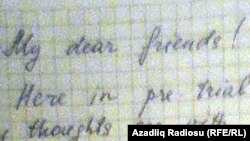 My dear friends!
Here in pre trial
thoughts
Azadlıq Radiosu (RFE/RL)